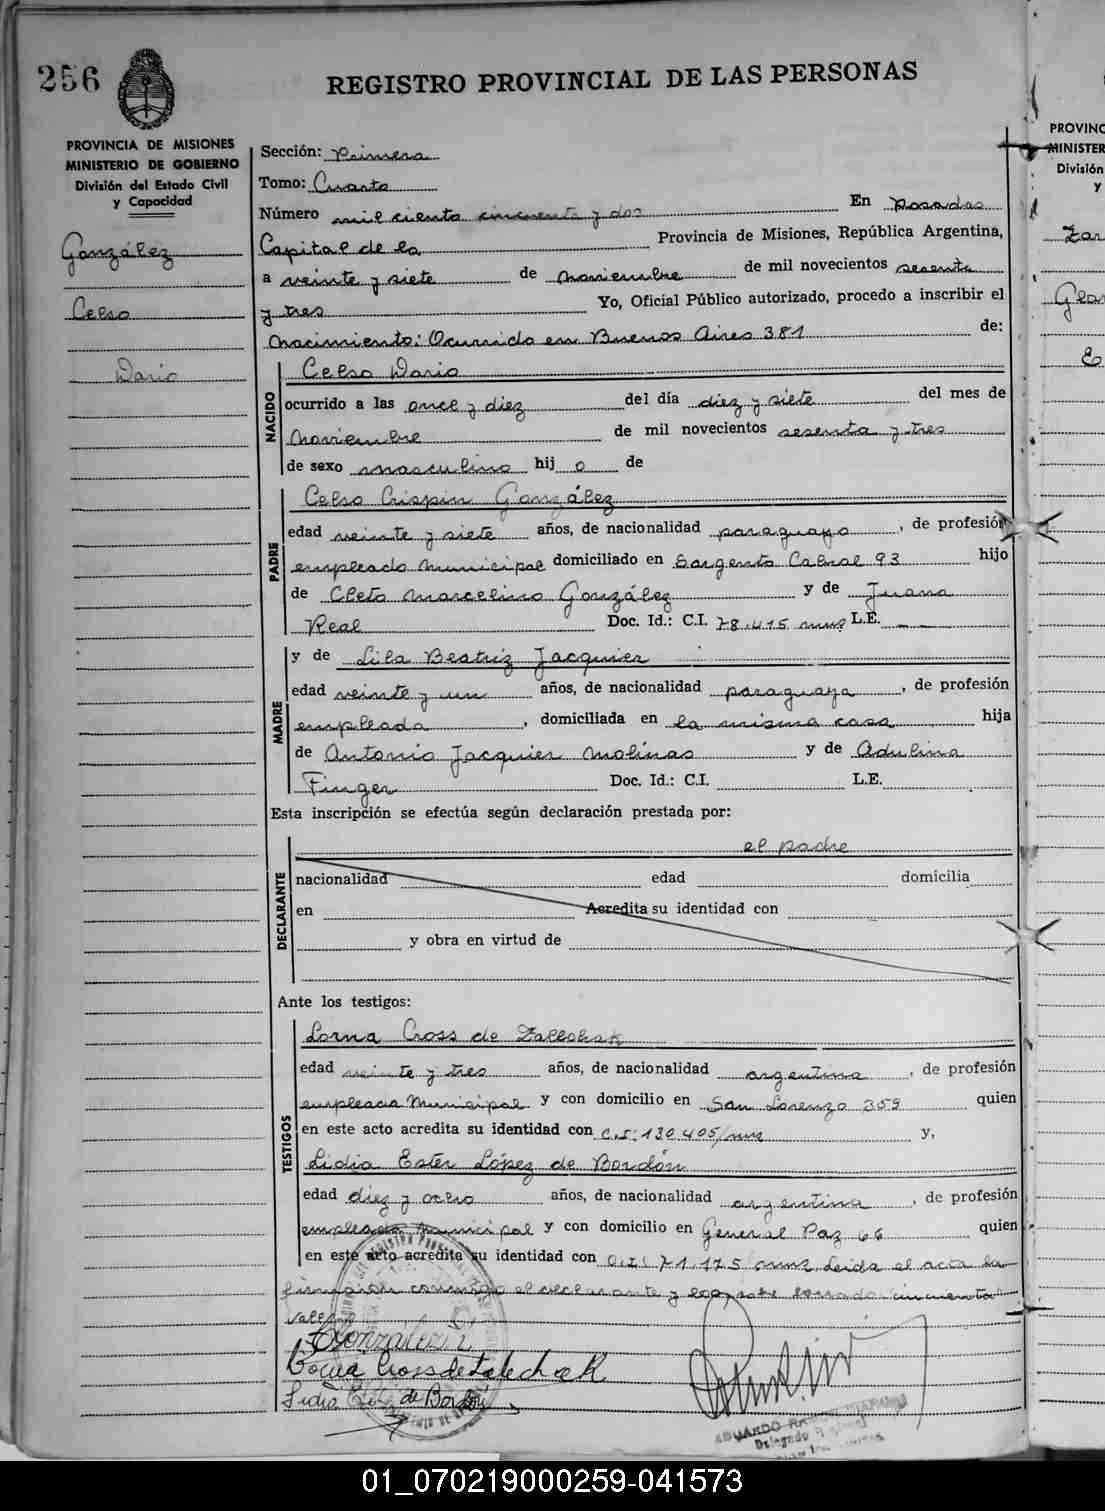 256
REGISTRO PROVINCIAL DE LAS PERSONAS
PROVINCIA DE MISIONES
MINISTERIO DE GOBIERNO
División del Estado Civil
y Capacidad
González
Celso
Dario
Sección: Primera
Tomo: Cuarto
Número mil ciento cincuenta y dos En Posadas
Capital de la Provincia de Misiones, República Argentina,
a veinte y siete de noviembre de mil novecientos sesenta
y tres Yo, Oficial Público autorizado, procedo a inscribir el
nacimiento: Ocurrido en Buenos Aires 381 de:
NACIDO
Celso Dario
ocurrido a las once y diez del día diez y siete del mes de
noviembre de mil novecientos sesenta y tres
de sexo masculino hij o de
PADRE
Celso Crispin González
edad veinte y siete años, de nacionalidad paraguayo, de profesión
empleado municipal domiciliado en Sargento Cabral 93 hijo
de Cleto Marcelino González y de Juana
Real Doc. Id.: C.I. 78.415 mnes L.E.
MADRE
y de Lila Beatriz Jacquier
edad veinte y un años, de nacionalidad paraguaya, de profesión
empleada, domiciliada en la misma casa hija
de Antonio Jacquier Molinas y de Adulina
Finger Doc. Id.: C.I. L.E.
Esta inscripción se efectúa según declaración prestada por:
DECLARANTE
el padre
nacionalidad edad domicilia
en Acredita su identidad con
y obra en virtud de
Ante los testigos:
TESTIGOS
Lorna Cross de
edad veinte y tres años, de nacionalidad argentina, de profesión
empleada Municipal y con domicilio en San Lorenzo 359 quien
en este acto acredita su identidad con C.I: 130.405/mnes y,
Lidia Ester López de Bordón
edad diez y ocho años, de nacionalidad argentina, de profesión
empleada municipal y con domicilio en General Paz 66 quien
en este acto acredita su identidad con C.I: 71.175 mnes Leida el acta la
firmaron conmigo el declarante y
Vale
González
Cross de
Lidia E. de Bordón
Delegado
PROVINC
MINISTER
División
y
01_070219000259-041573